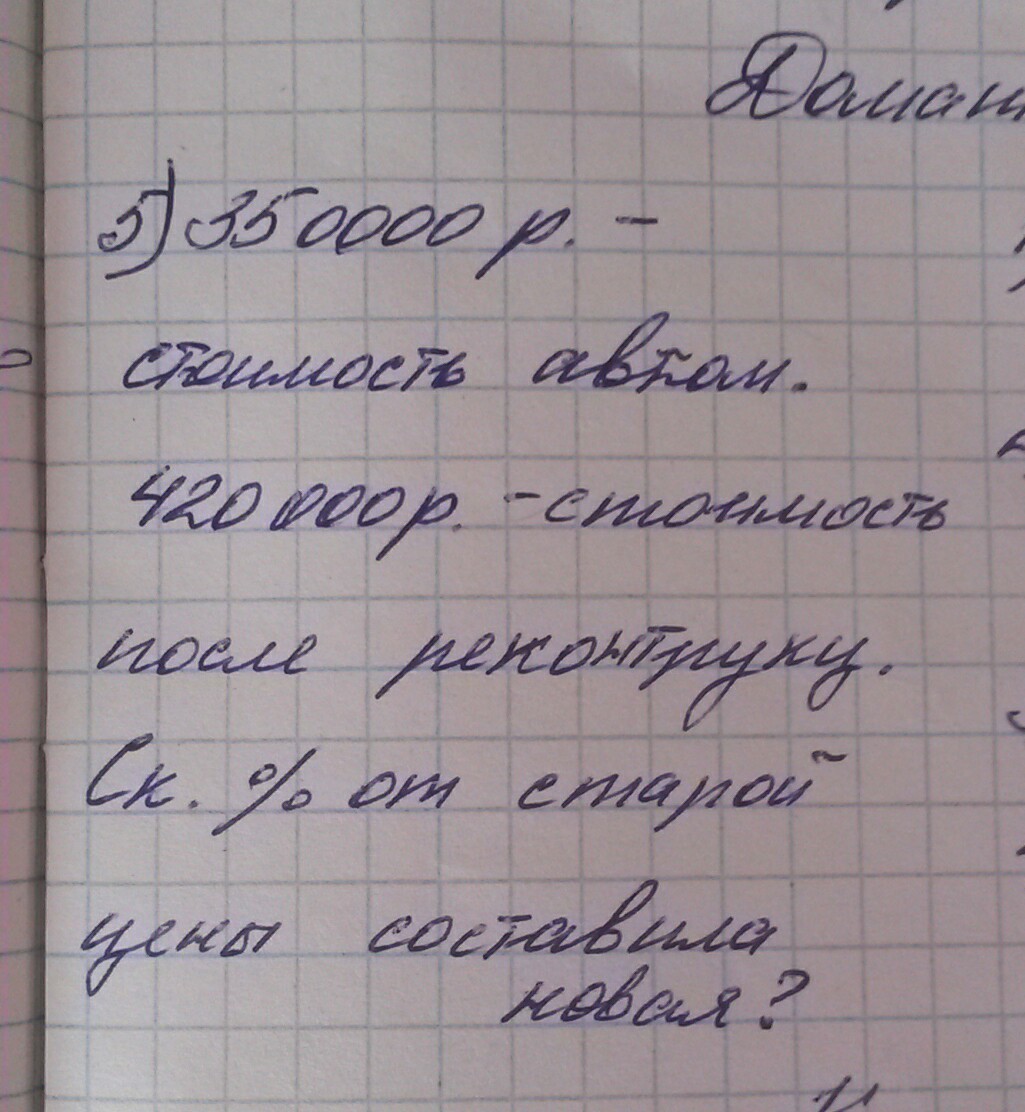 Домаш
5) 350000 р. -
стоимость автом.
420000р. - стоимость
после реконтрукц.
Ск. % от старой
цены составила
новая?